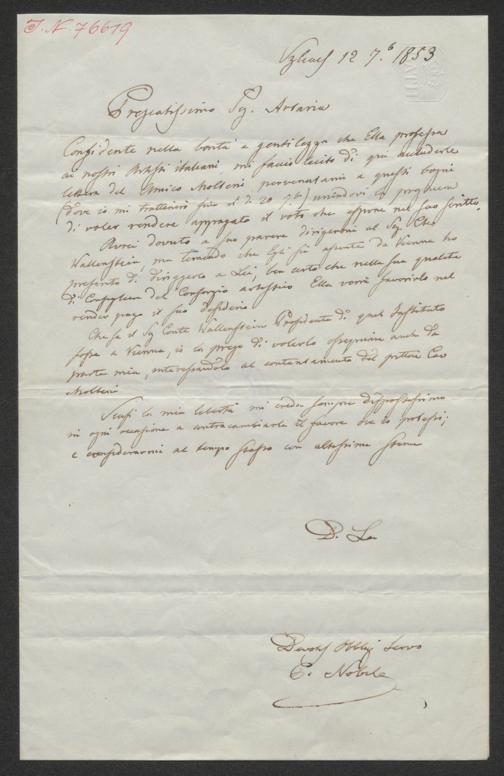 I. N. 76619
12 7.b 1853
Pregiatissimo Sig. Artaria
Confidente nella bontà e gentilezza che Ella professa
ai nostri Artisti italiani, mi faccio lecito di qui accluderle
lettera del Amico Molteni, pervenutami a questi bagni
(dove io mi tratterrò fino al di 20 7b) unendovi la preghiera
di voler rendere appagato il voto che esprime nel suo scritto.
Avrei dovuto a suo parere dirigermi al Sig. Cte
Wallenstein, ma temendo che Egli sia assente da Vienna ho
preferito di dirigerlo a Lei, ben certo che nella sua qualità
di Consigliere del Consorzio artistico Ella vorrà favorirlo nel
render pago il suo desiderio.
Che se il Sig Conte Wallenstein Presidente di quel Instituto
fosse a Vienna, io la prego di volerlo ossequiare anche da
parte mia, interessandolo al contentamento del pittore Cav
Molteni
Scusi la mia libertà mi creda sempre dispostissimo
in ogni occasione a contracambiarle il favore che le professi;
e considerarmi al tempo stesso con altissima stima
Di Lei
Devot Obblig Servo
P. Nobile